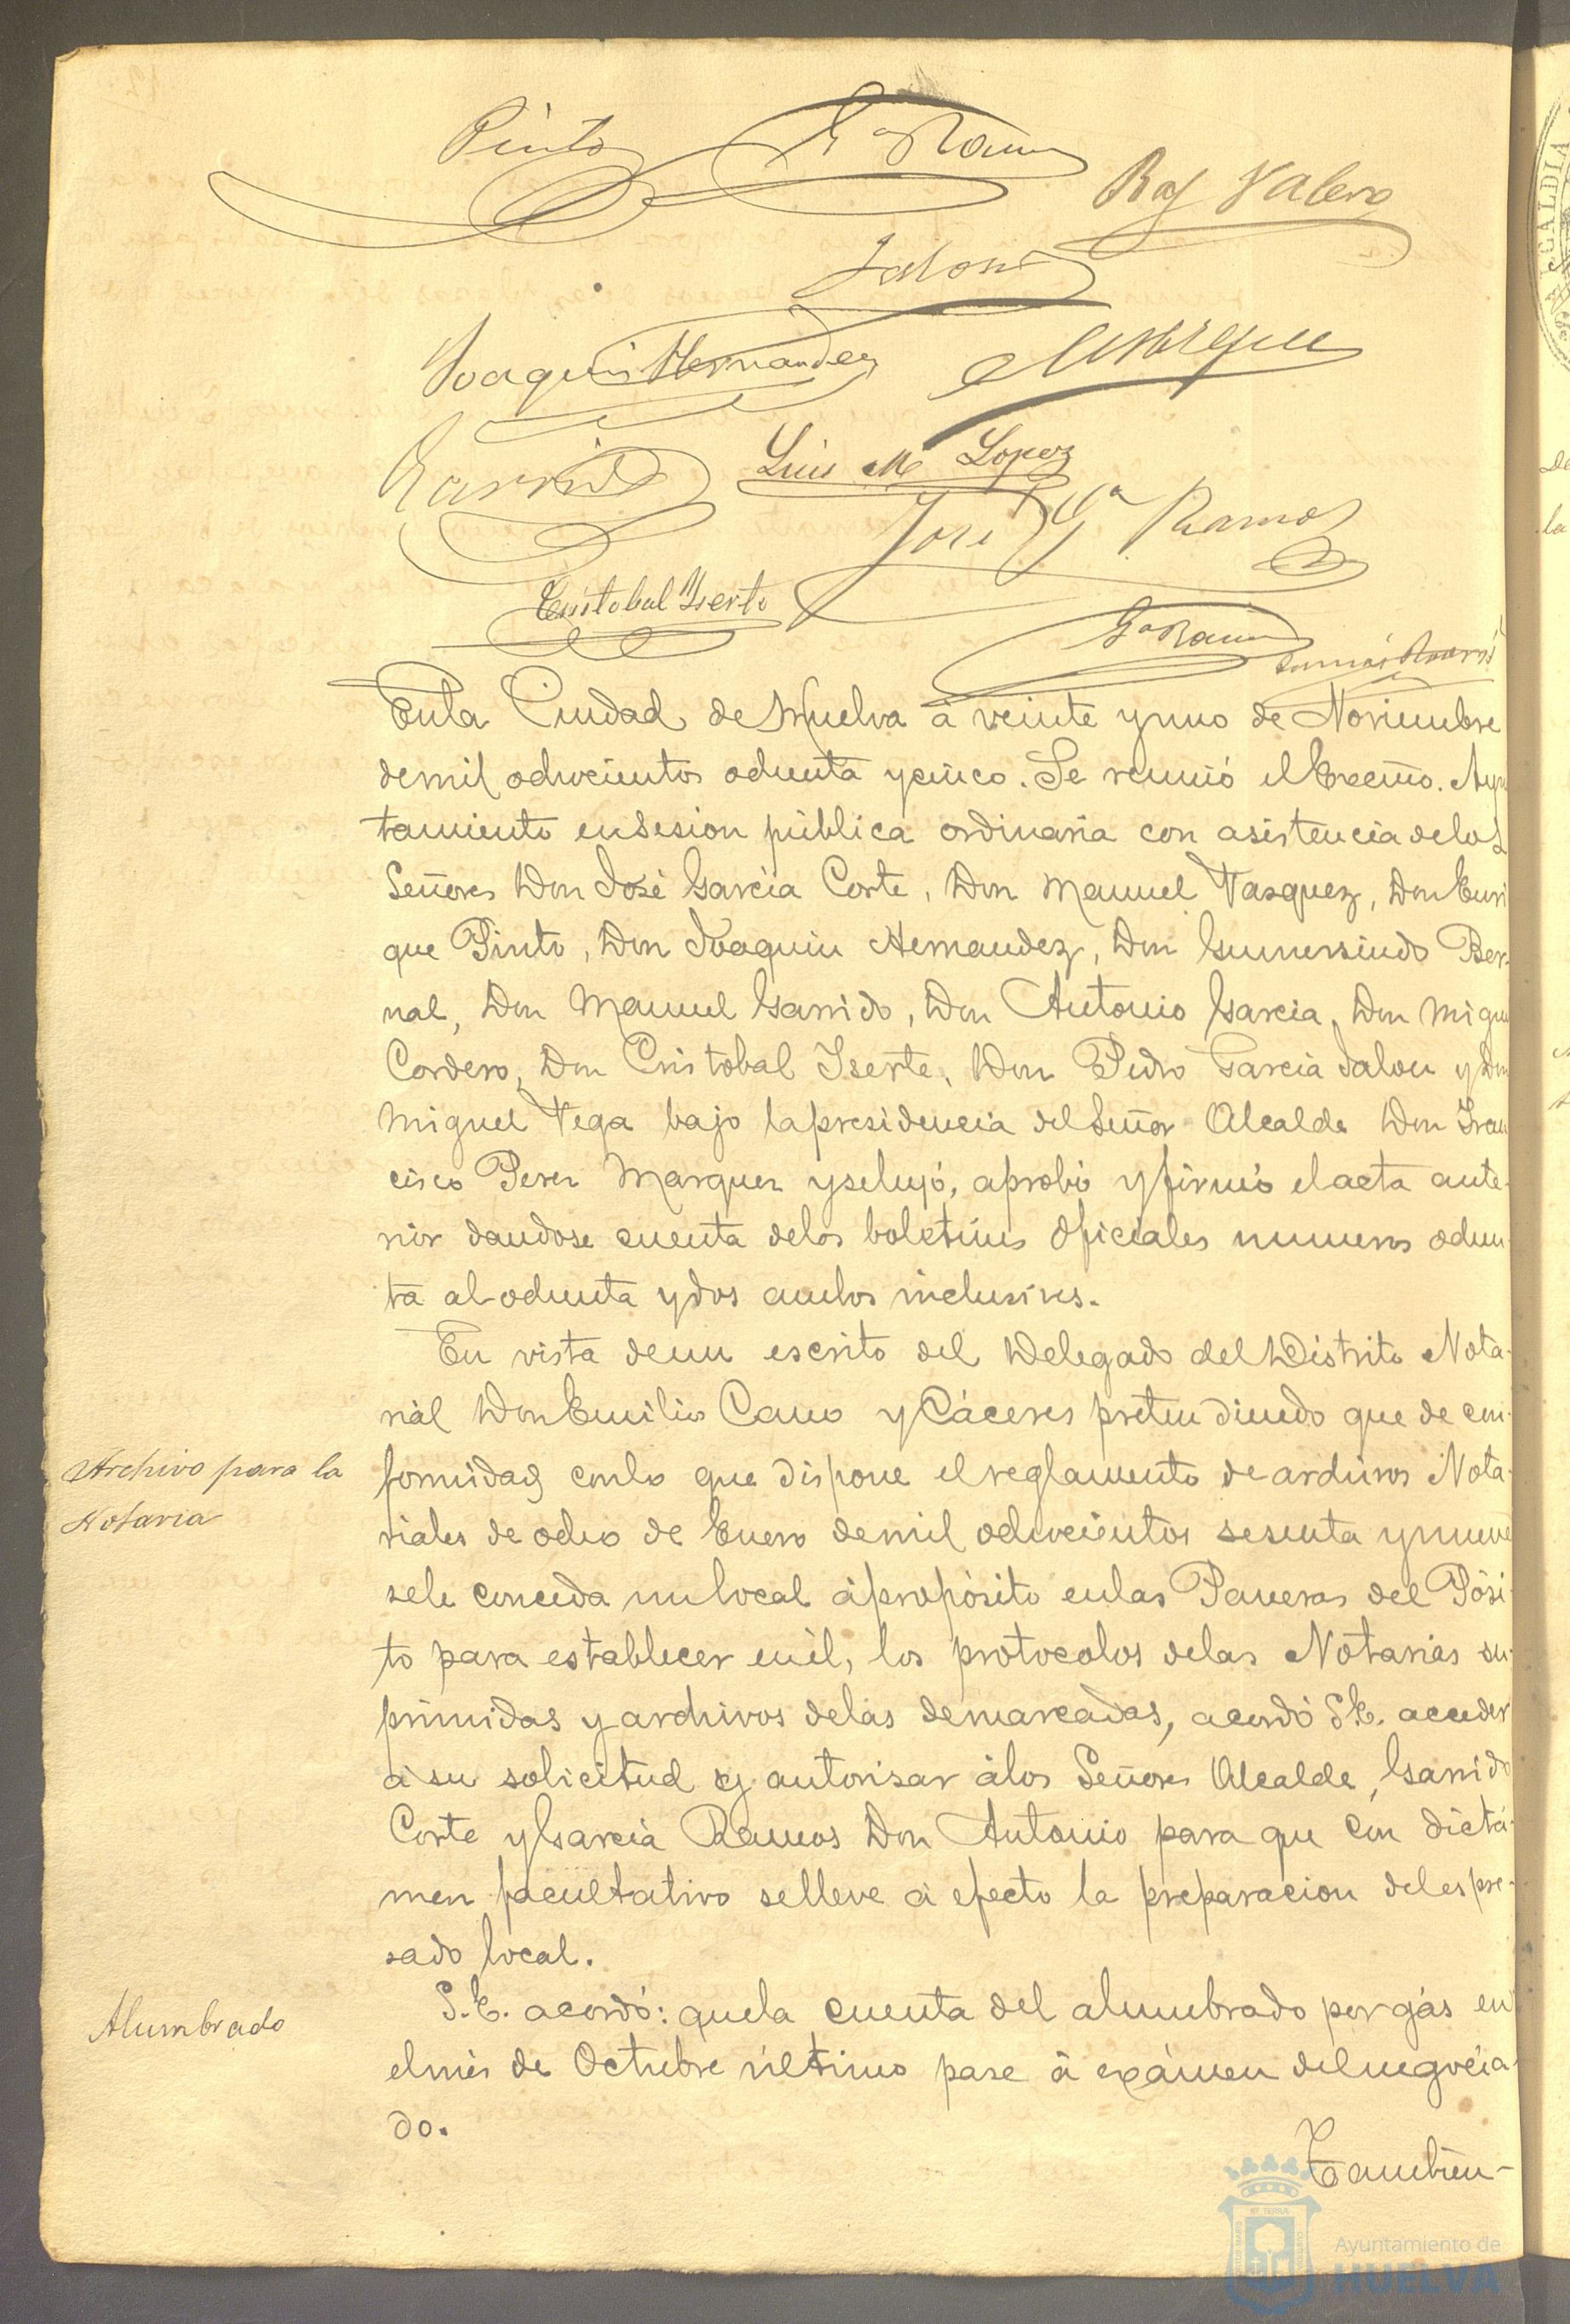 Pinto
Gª Ramos
Raf Valero
Jalon
Joaquin Hernandez
Garrido
Luis M Lopez
José Gª Ramos
Cristobal Yserte
Gª Ramos
En la Ciudad de Huelva á veinte y uno de Noviembre
de mil ochocientos ochenta y cinco. Se reunió el Excmo. Ayun
tamiento en sesion pública ordinaria con asistencia de los
Señores Don José Garcia Corte, Don Manuel Vasquez, Don Enri
que Pinto, Don Joaquin Hernandez, Don Gumersindo Ber-
nal, Don Manuel Garrido, Don Antonio Garcia, Don Migue
Cordero, Don Cristobal Yserte, Don Pedro Garcia Jalon y Don
Miguel Vega bajo la presidencia del Señor Alcalde Don Fran
cisco Perez Marquez y se leyó, aprobó y firmó el acta ante-
rior dandose cuenta de los boletines oficiales numeros ochen-
ta al ochenta y dos ambos inclusives.
En vista de un escrito del Delegado del Distrito Nota-
rial Don Emilio Cano y Cáceres pretendiendo que de con-
Archivo para la
Notaria
formidad con lo que dispone el reglamento de archivos Nota-
riales de ocho de Enero de mil ochocientos sesenta y nueve
se le conceda un local á propósito en las Paneras del Pósi-
to para establecer en él, los protocolos de las Notarias su-
primidas y archivos de las demarcadas, acordó S.E. acceder
á su solicitud y autorisar á los Señores Alcalde, Garrido
Corte y Garcia Ramos Don Antonio para que con dictá-
men facultativo se lleve á efecto la preparacion del espre-
sado local.
Alumbrado
S.E. acordó: que la cuenta del alumbrado por gás en
el mes de Octubre último pase á exámen del negocia-
do.
Tambien-
Ayuntamiento de
HUELVA
ALCALDIA
de
la